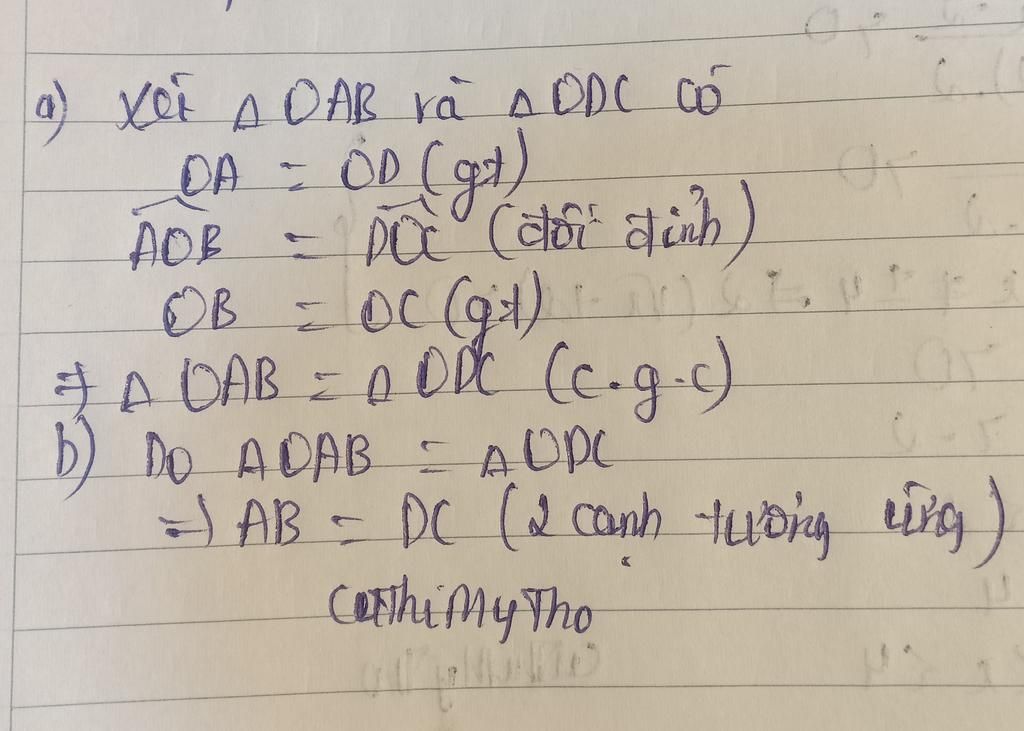 a) Xét Δ OAB và Δ ODC có
OA = OD (gt)
AOB = DOC (đối đỉnh)
OB = OC (gt)
=> Δ OAB = Δ ODC (c.g.c)
b) Do Δ OAB = Δ ODC
=> AB = DC (2 cạnh tương ứng)